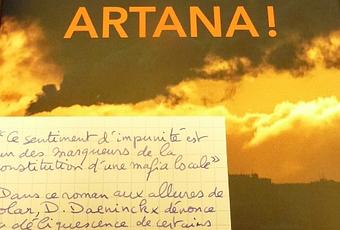 ARTANA !
"Ce sentiment d'impunité est
un des marqueurs de la
constitution d'une mafia locale"
Dans ce roman aux allures de
polar, D. Daeninckx dénonce
la déliquescence de certains